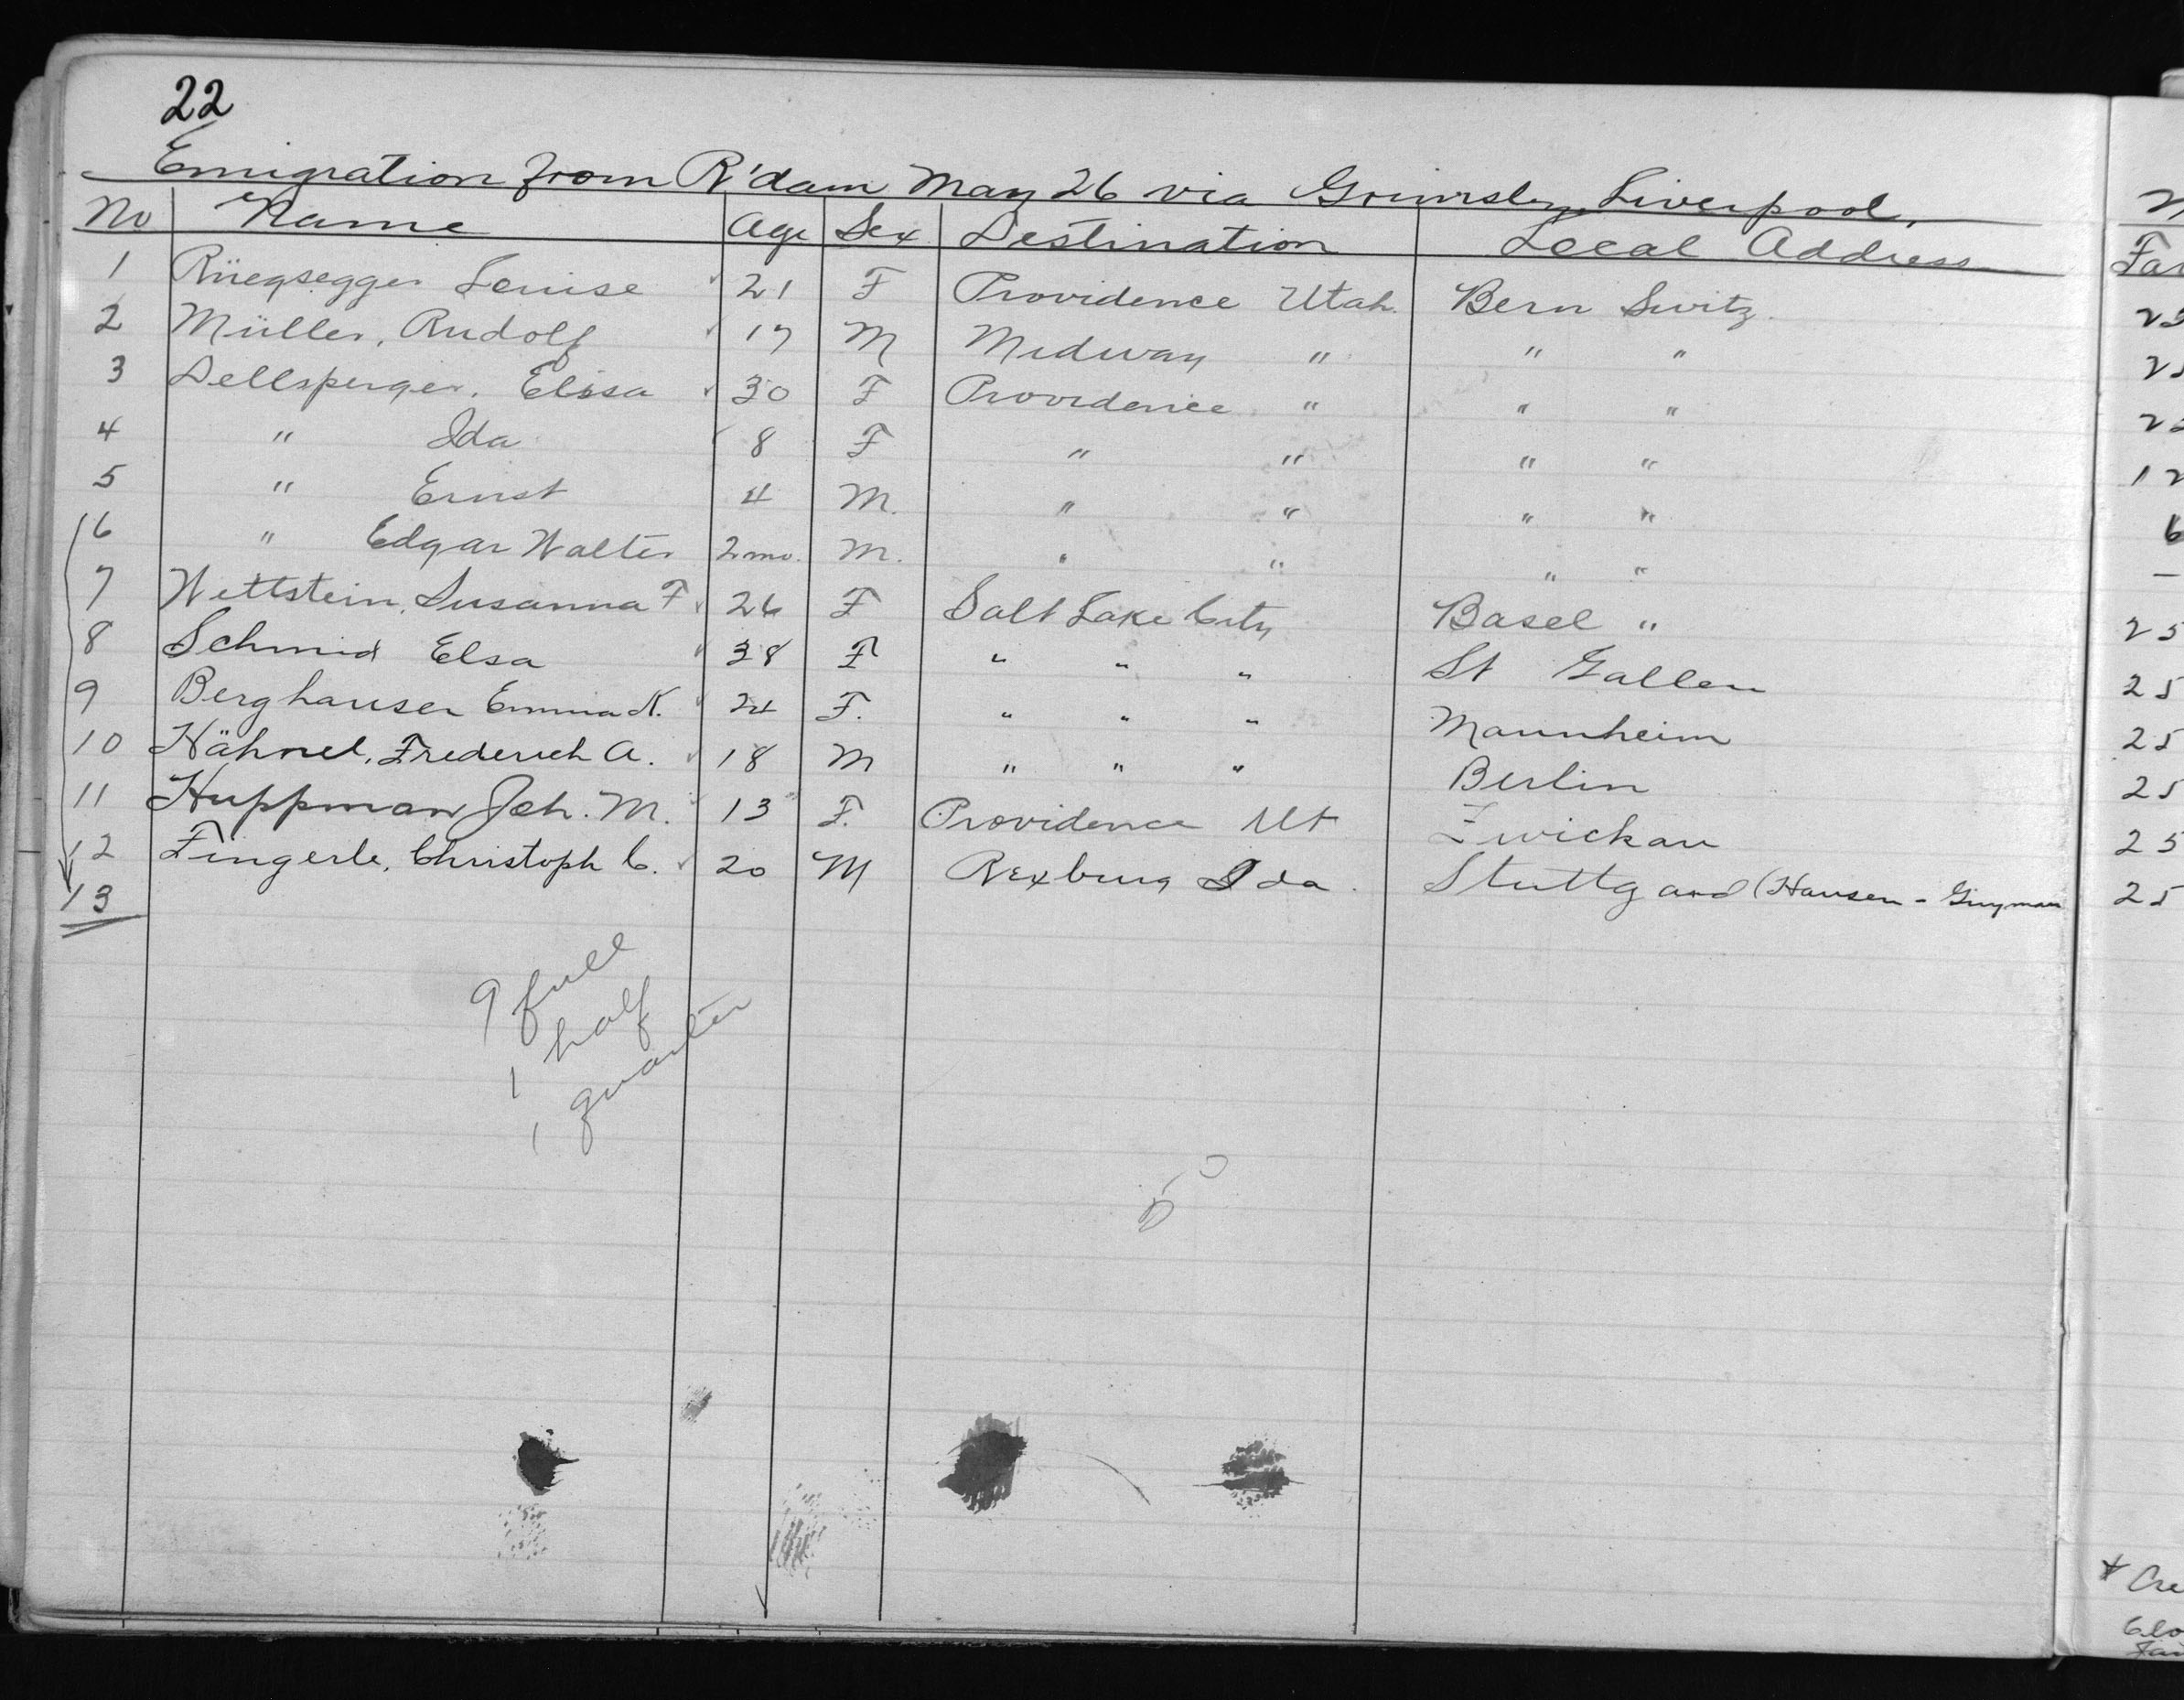 22
Emigration from R'dam May 26 via Grimsby Liverpool,
No Name Age Sex Destination Local Address
1 Rüegsegger Louise 21 F Providence Utah. Bern Switz.
2 Müller, Rudolf 17 M Midway " " "
3 Dellsperger, Elisa 30 F Providence " " "
4 " Ida 8 F " " " "
5 " Ernst 4 M. " " " "
6 " Edgar Walter 2 mo. M. " " " "
7 Wettstein, Susanna F 26 F Salt Lake City Basel "
8 Schmid Elsa 38 F " " " St Gallen
9 Berghauser Emma K. 24 F. " " " Mannheim
10 Hähnel, Frederich A. 18 M " " " Berlin
11 Huppman Joh. M. 13 F. Providence Ut Zwickau
12 Fingerle, Christoph C. 20 M Rexburg Ida. Stuttgard (Hausen -
13
9 full
1 half
1 quarter
25
25
25
25
25
25